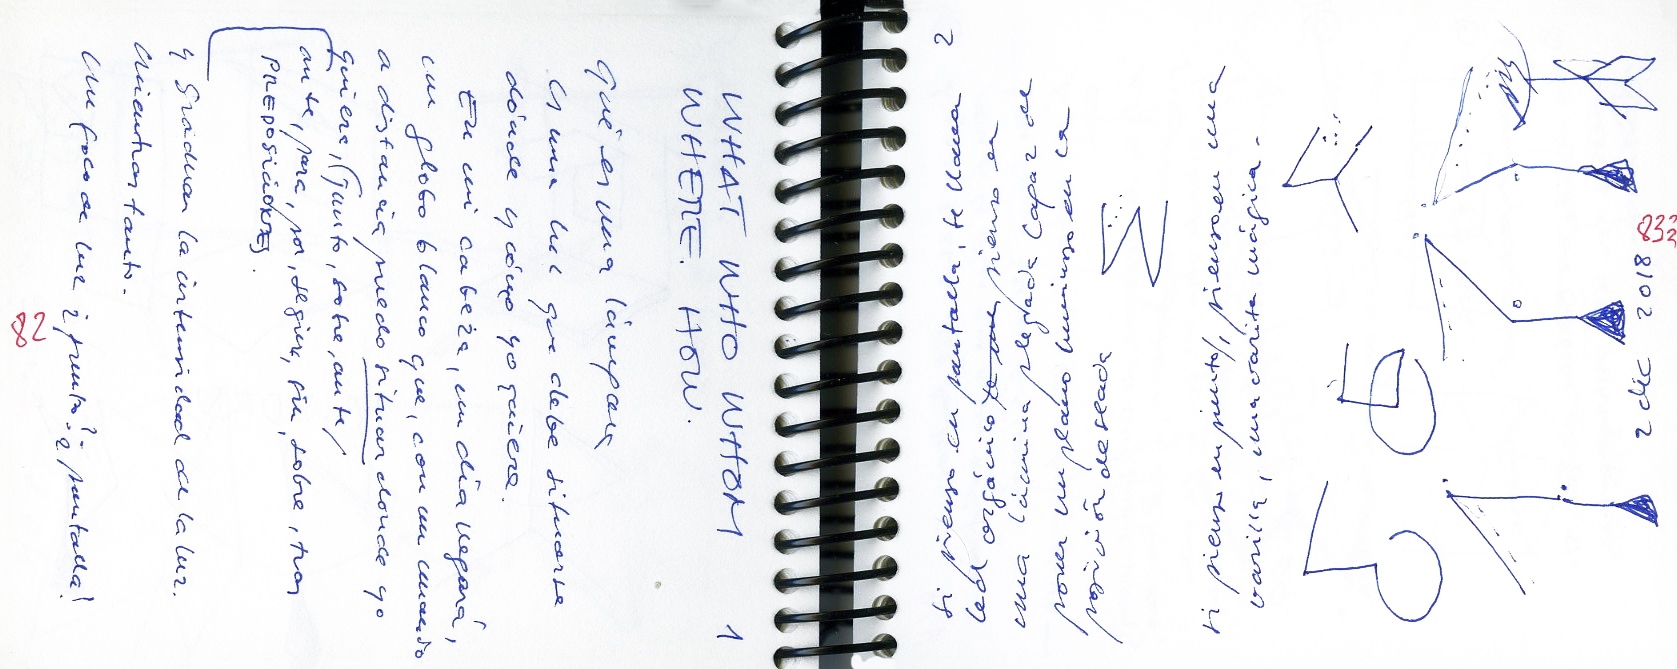 WHAT WHO WHOM 1
WHERE. HOW.
Qué es una lámpara
Es una luz que debe situarse
dónde y cómo yo quiera.
En mi cabeza, un día llegará,
un globo blanco que, con un mando
a distancia puedo situar donde yo
quiera, (junto, sobre, ante,
ante, para, por, según, sin, sobre, tras
PREPOSICIONES).
y Graduar la intensidad de la luz.
Mientras tanto.
Un foco de luz ¿punto? ¿pantalla!
82
2
Si pienso en pantalla, te llama
led orgánico pienso en
una lámina plegada capaz de
poner un plano luminoso en la
posición deseada
si pienso en punto, pienso en una
varilla, una varita mágica.
2 dic 2018